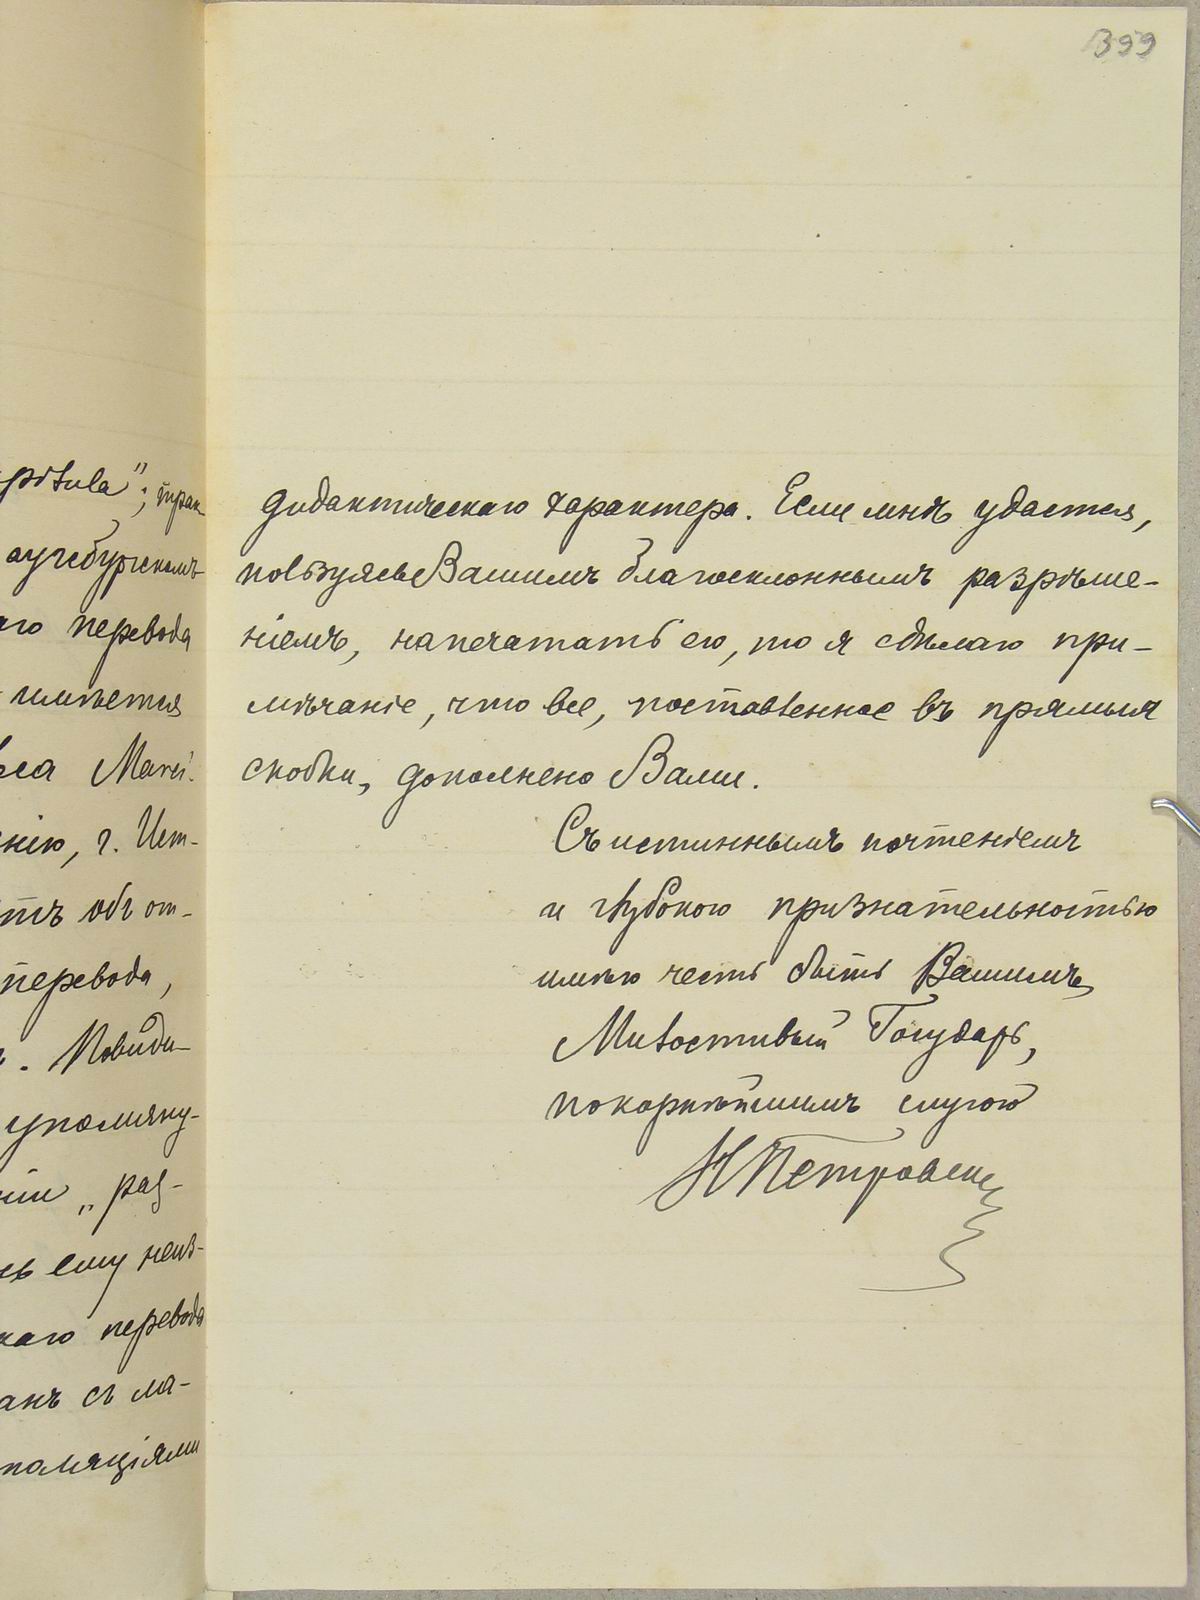 399
pitula"; трак-
аугсбургскомъ
аго перевода
имѣется
Marci.
нію, г. Ист-
тъ объ от-
перевода,
Повиди-
упомяну-
ніи „раз-
ему неиз-
каго перевода
анъ съ ла-
поляціями
дидактическаго характера. Если мнѣ удастся,
пользуясь Вашимъ благосклоннымъ разрѣше-
ніемъ, напечатать ею, то я сдѣлаю при-
мѣчаніе, что все, поставленное въ прямыя
скобки, дополнено Вами.
Съ истиннымъ почтеніемъ
и глубокою признательностью
имѣю честь быть Вашимъ,
Милостивый Государь,
покорнѣйшимъ слугою
Н Петровскій